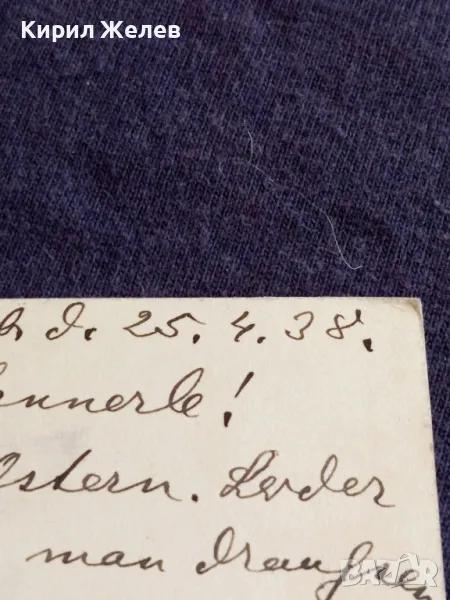 Кирил Желев
d. 25. 4. 38.
nnerle!
Ostern. Leider
man draußen
BAZAR